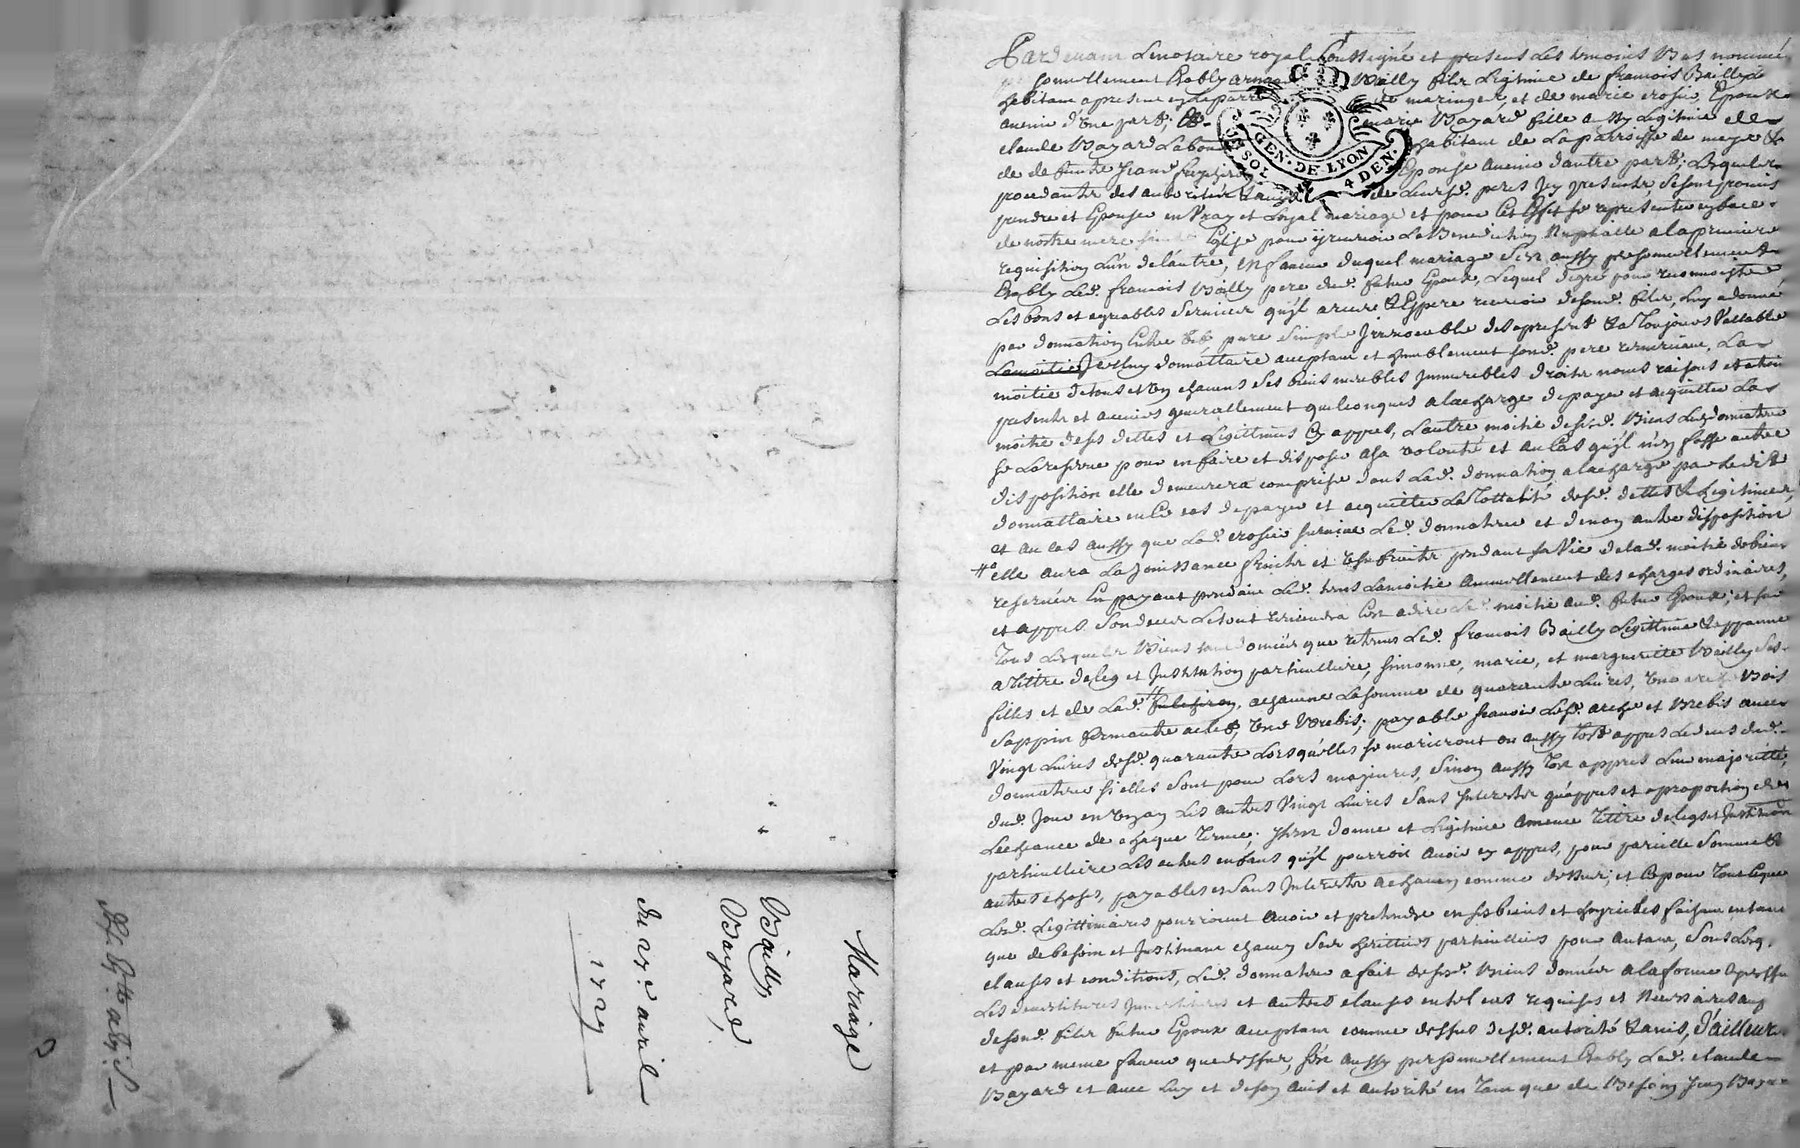 Mariage
Bailly,
Bayard,
du 27e avril
1727
Pardevant Le notaire royal soussigné et presens Les temoins Bas nommés
personnellement Estably Bailly fils Legitime de francois Bailly
habitant a present et de marie Epoux
avenir d'Une part, Et marie Bayard fille aussy Legitime de
claude Bayard Labou habitant de La parroisse de
de deffunte Epouse avenir d'autre part; Lesquels
procedants des autorités de Leursd. peres icy presents se sont promis
prendre et Epouser en Vray et Loyal mariage et pour Cet effet se representer en face
de nostre mere sainte Eglise pour y recevoir La Benediction Nuptialle a la premiere
requisition L'un de l'autre, En faveur duquel mariage s'est aussy personnellement
Estably Led. francois Bailly pere dud. futur Epoux, Lequel de gré pour reconnoistre
Les bons et agreables services qu'il a receu et Espere recevoir de sond. fils, Luy a donné
par donnation Entre vifs pure simple Irrevocable des a present et a Toujours Vallable
Lamoitié Icelluy donnattaire acceptant et humblement sond. pere remerciant, La
moitié de tous et Un chacuns ses biens meubles Immeubles droits noms raisons et actions
presents et avenirs generallement quelconques a la charge de payer et acquitter La
moitié de ses dettes et Legittimes Cy appres, L'autre moitié desd. Biens Led. donnateur
se La reserve pour en faire et disposer a sa volonté et au Cas qu'il n'en fasse autre
disposition elle demeurera comprise dans Lad. donnation a la charge par Ledit
donnattaire en Ce cas de payer et acquitter La Tottalité desd. dettes et Legitimes,
et au cas aussy que Lad. survive Led. donnateur et de non autre disposition
elle aura La Jouissance fruits et Usufruits pendant sa Vie de lad. moitié de biens
reservés En payant pendant Led. tems La moitié annuellement des charges ordinaires,
et appres Son deces Le tout reviendra Cest a dire Lad. moitié aud. futur Epoux; et sur
Tous Lesquels Biens tant donnés que retenus Led. francois Bailly Legittime et appanne
a Tittre de Leg et Institution particulliere, simonne, marie, et marguerite Bailly ses
filles et de Lad. a chacune La somme de quarante Livres, Une arche Bois
Sappin fermante a clef, Une Brebis; payable scavoir Lesd. arche et Brebis avec
Vingt Livres desd. quarante Lorsqu'elles se marieront ou aussy Tost appres Le deces dud.
donnateur si elles sont pour Lors majeures, Sinon aussy Tost appres Leur majoritté,
dud. Jour en Un an Les autres Vingt Livres Sans Interests qu'appres et a proportion de
L'echeance de chaque Terme; Item donne et Legitime a meme Tittre de Leg et Institution
particulliere Les autres enfans qu'il pourroit avoir cy appres, pour pareille Somme et
autres choses, payables et Sans Interests a chacun comme dessus; et Ce pour Tout Ce que
Lesd. Legittimaires pourroient avoir et pretendre en ses biens et hoyries les faisant en tant
que de besoin et Instituant chacun Ses herittiers particulliers pour autant, Sous Lesq.
clauses et conditions, Led. donnateur a fait desd. biens donnés a la forme
Les devestitures Investitures et autres clauses en tel cas requises et Necessaires au
de sond. fils futur Epoux acceptant comme dessus desd. autorité et avis, D'ailleurs
et par meme faveur que dessus, s'est aussy personnellement Estably Led. claude
Bayard et avec Luy et de son avis et autorité en Tant que de Besoin
GEN · DE · LYON
SOL 4 DEN.